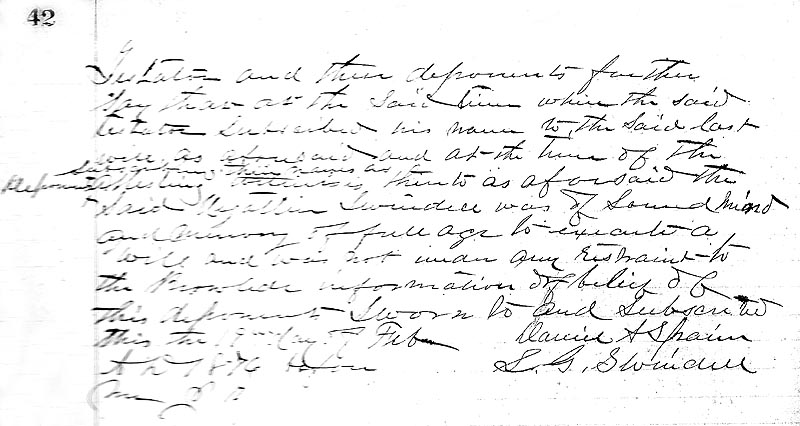 42
Testator and these deponents further
Say that at the Said time when the said
testator Subscribed his name to the Said last
will as aforesaid and at the time of the
deponents subscribing their names as
attesting witnesses thereto as aforesaid the
Said Swindell was of Sound mind
and memory of full age to execute a
Will and was not under any restraint to
the Knowledge information or belief of
this deponent Sworn to and Subscribed
this the day of Feb Daniel A Spain
A D 1876 before S. G. Swindell
me